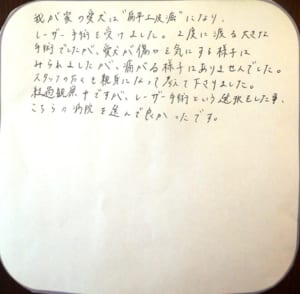 我が家の愛犬は"扁平上皮癌"になり、
レーザー手術を受けました。2度に渡る大きな
手術でしたが、愛犬が傷口を気にする様子は
みられましたが、痛がる様子はありませんでした。
スタッフの方々も親身になって考えて下さりました。
経過観察中ですが、レーザー手術という選択をした事、
こちらの病院を選んで良かったです。